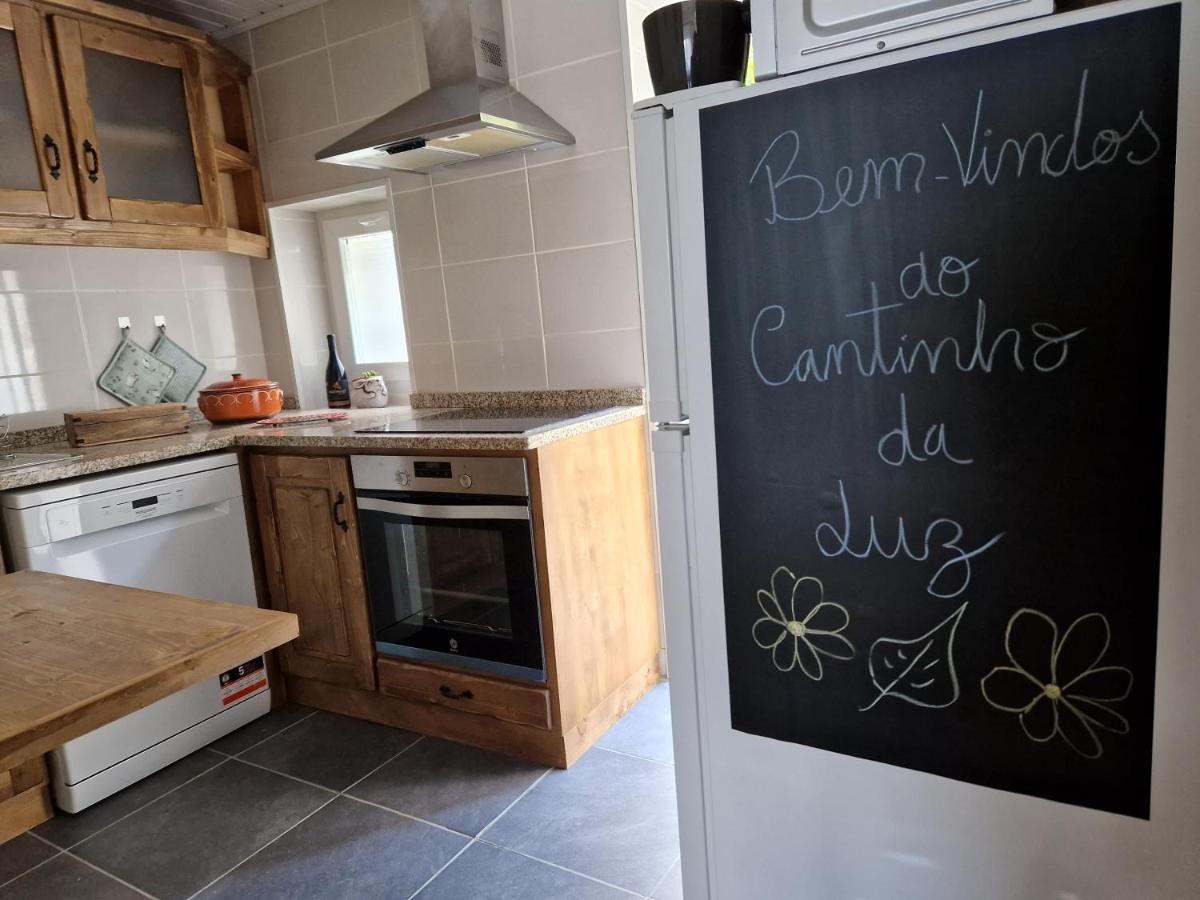 Bem-Vindos
do
Cantinho
da
Luz
5